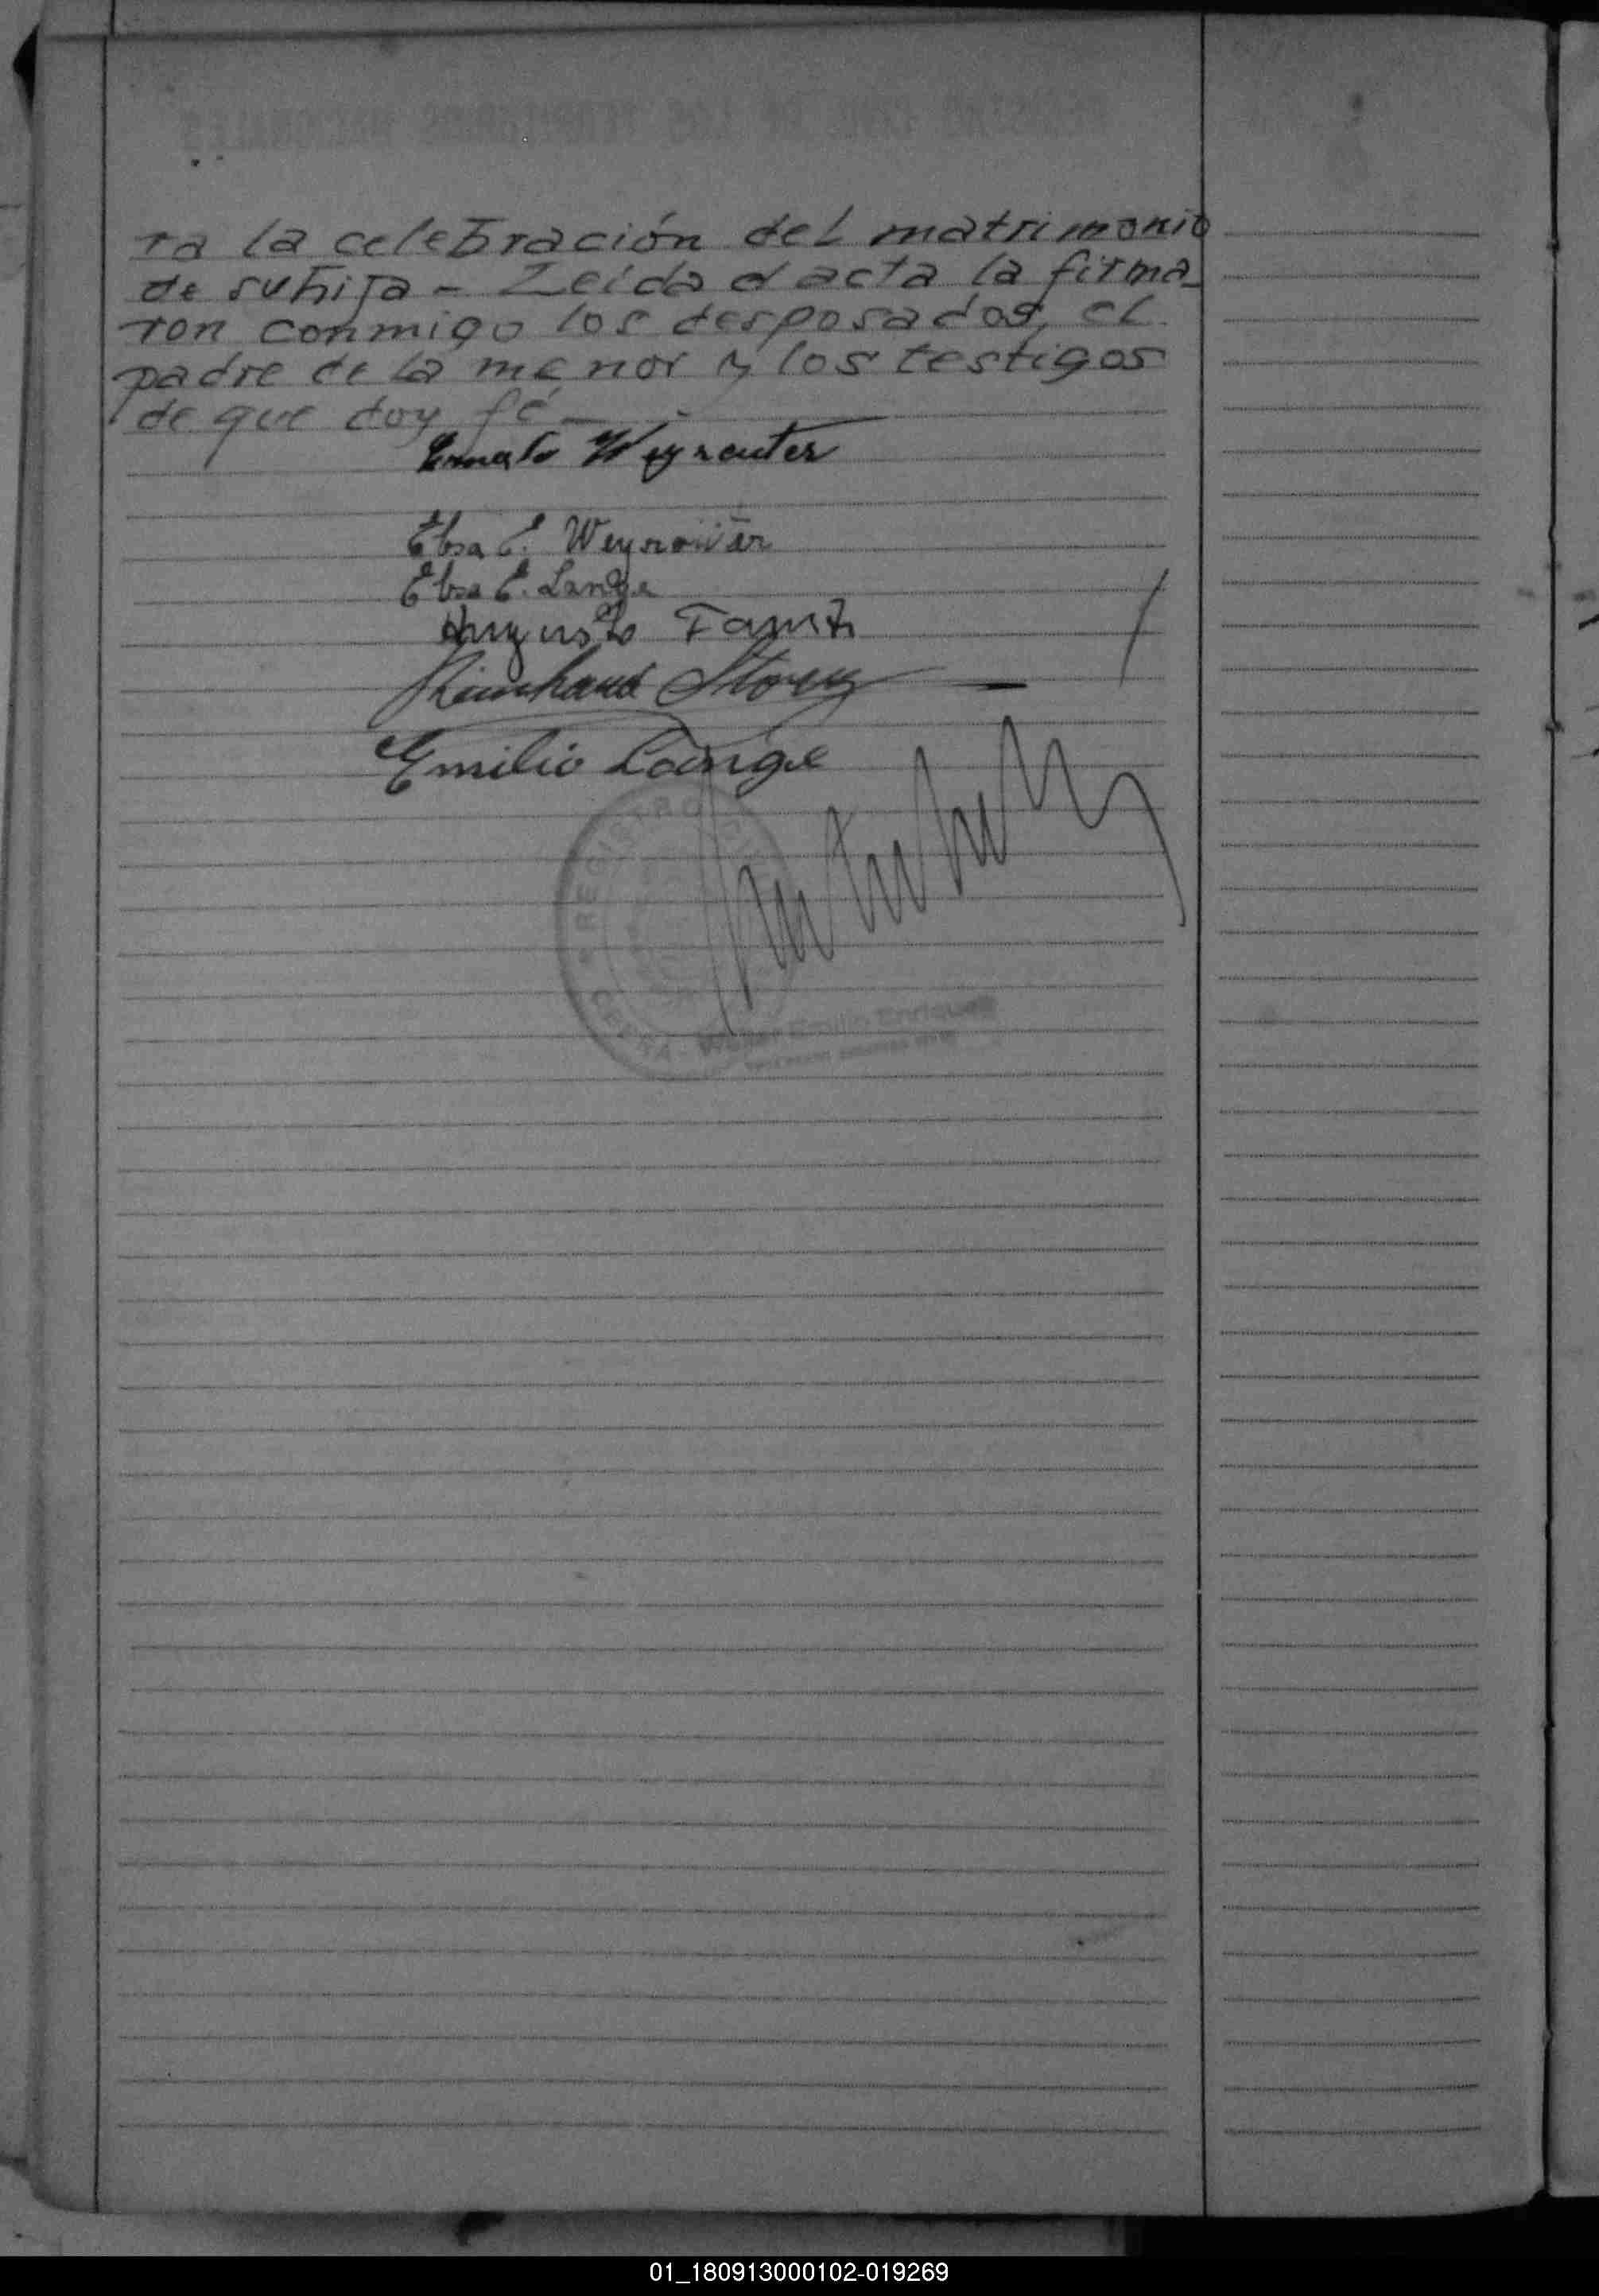 ra la celebración del matrimonio
de su hija - Leida el acta la firma-
ron conmigo los desposados, el
padre de la menor y los testigos
de que doy fé -
Ernesto Weyreuter
Elsa E.
Elsa E. Lange
Augusto
Reinhard
Emilio Lange
REGISTRO CIVIL
Enrique
01_180913000102-019269